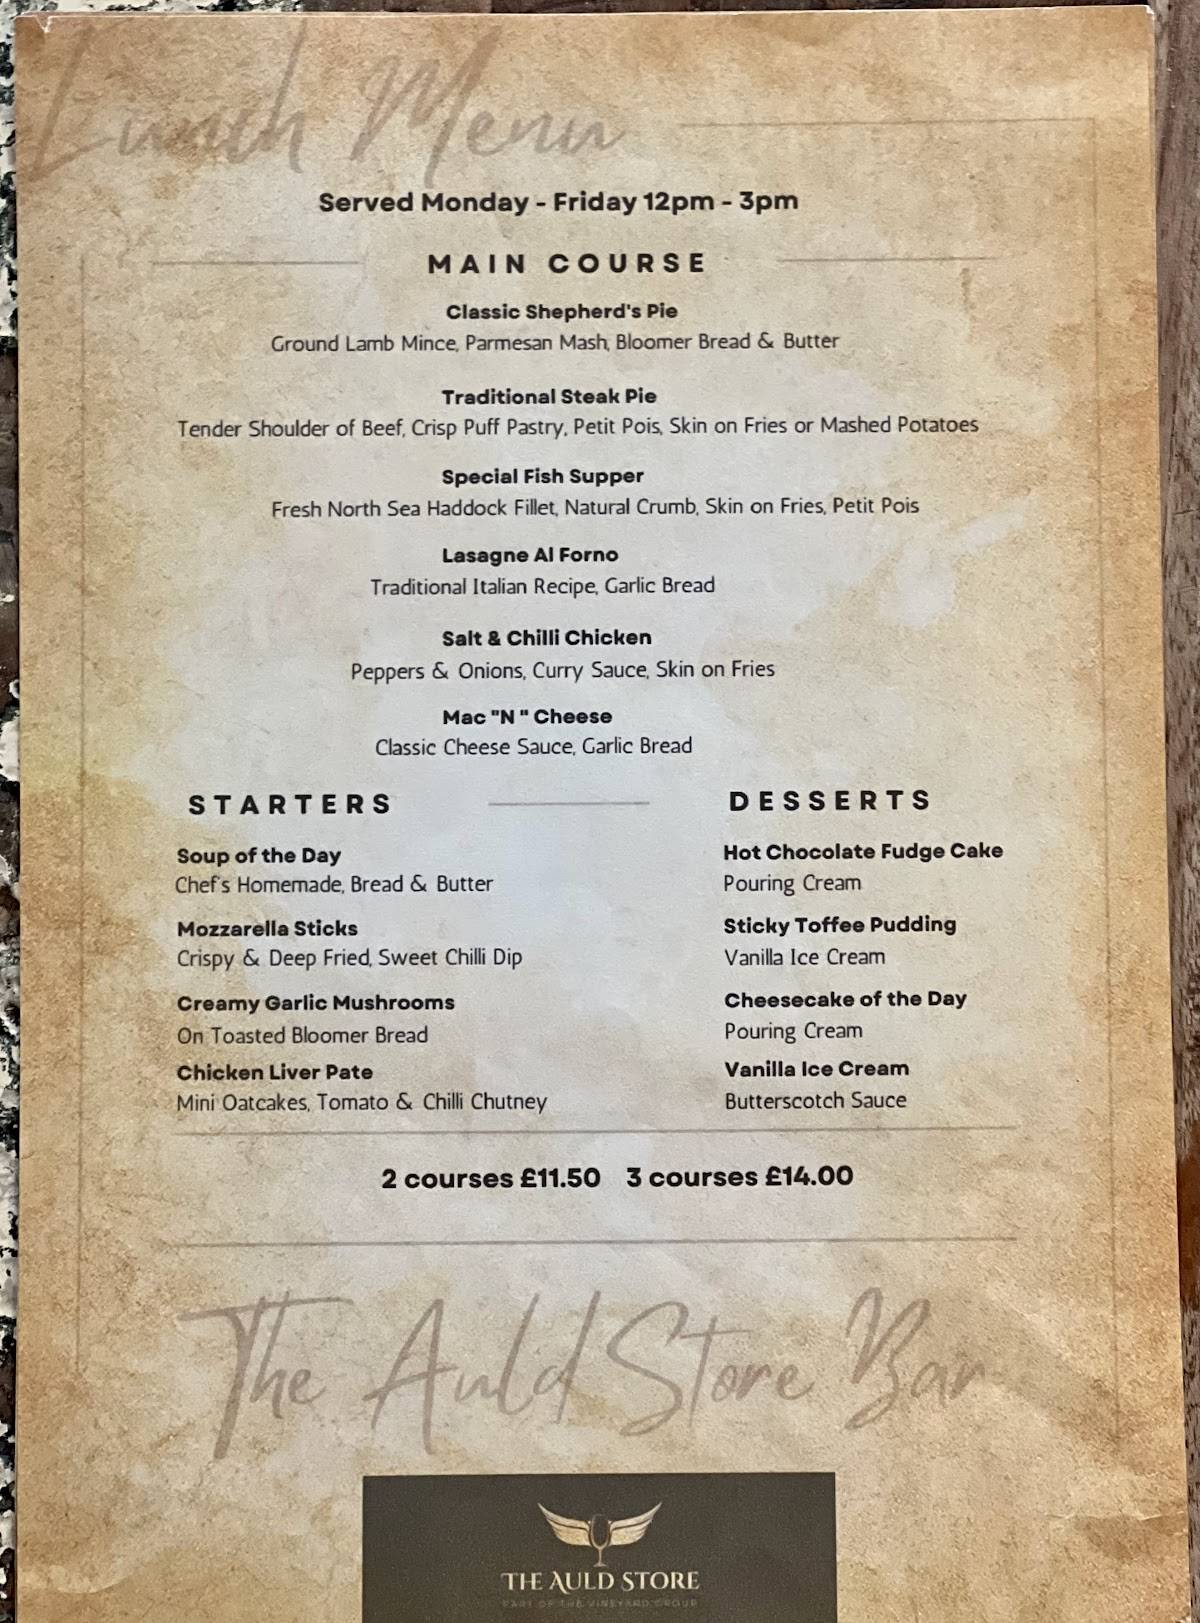 Lunch Menu
Served Monday - Friday 12pm - 3pm
MAIN COURSE
Classic Shepherd's Pie
Ground Lamb Mince, Parmesan Mash, Bloomer Bread & Butter
Traditional Steak Pie
Tender Shoulder of Beef, Crisp Puff Pastry, Petit Pois, Skin on Fries or Mashed Potatoes
Special Fish Supper
Fresh North Sea Haddock Fillet, Natural Crumb, Skin on Fries, Petit Pois
Lasagne Al Forno
Traditional Italian Recipe, Garlic Bread
Salt & Chilli Chicken
Peppers & Onions, Curry Sauce, Skin on Fries
Mac "N " Cheese
Classic Cheese Sauce, Garlic Bread
STARTERS
Soup of the Day
Chef's Homemade, Bread & Butter
Mozzarella Sticks
Crispy & Deep Fried, Sweet Chilli Dip
Creamy Garlic Mushrooms
On Toasted Bloomer Bread
Chicken Liver Pate
Mini Oatcakes, Tomato & Chilli Chutney
DESSERTS
Hot Chocolate Fudge Cake
Pouring Cream
Sticky Toffee Pudding
Vanilla Ice Cream
Cheesecake of the Day
Pouring Cream
Vanilla Ice Cream
Butterscotch Sauce
2 courses £11.50 3 courses £14.00
The Auld Store Bar
THE AULD STORE
PART OF THE VINEYARD GROUP